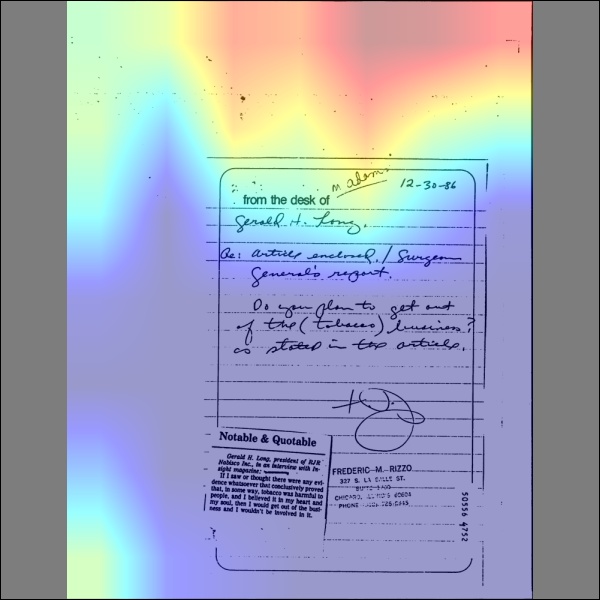 M Adams
12-30-86
from the desk of
Gerald H. Long.
Re: article enclosed / Surgeon
General's report.
Do you plan to get out
of the (tobacco) business?
as stated in the article.
Notable & Quotable
Gerald H. Long, president of RJR
Nabisco Inc., in an interview with In-
sight magazine:
If I saw or thought there were any evi-
dence whatsoever that conclusively proved
that, in some way, tobacco was harmful to
people, and I believed it in my heart and
my soul, then I would get out of the busi-
ness and I wouldn't be involved in it.
FREDERIC M. RIZZO
327 S. LA SALLE ST.
CHICAGO, ILLINOIS 60604
PHONE
50556 4752